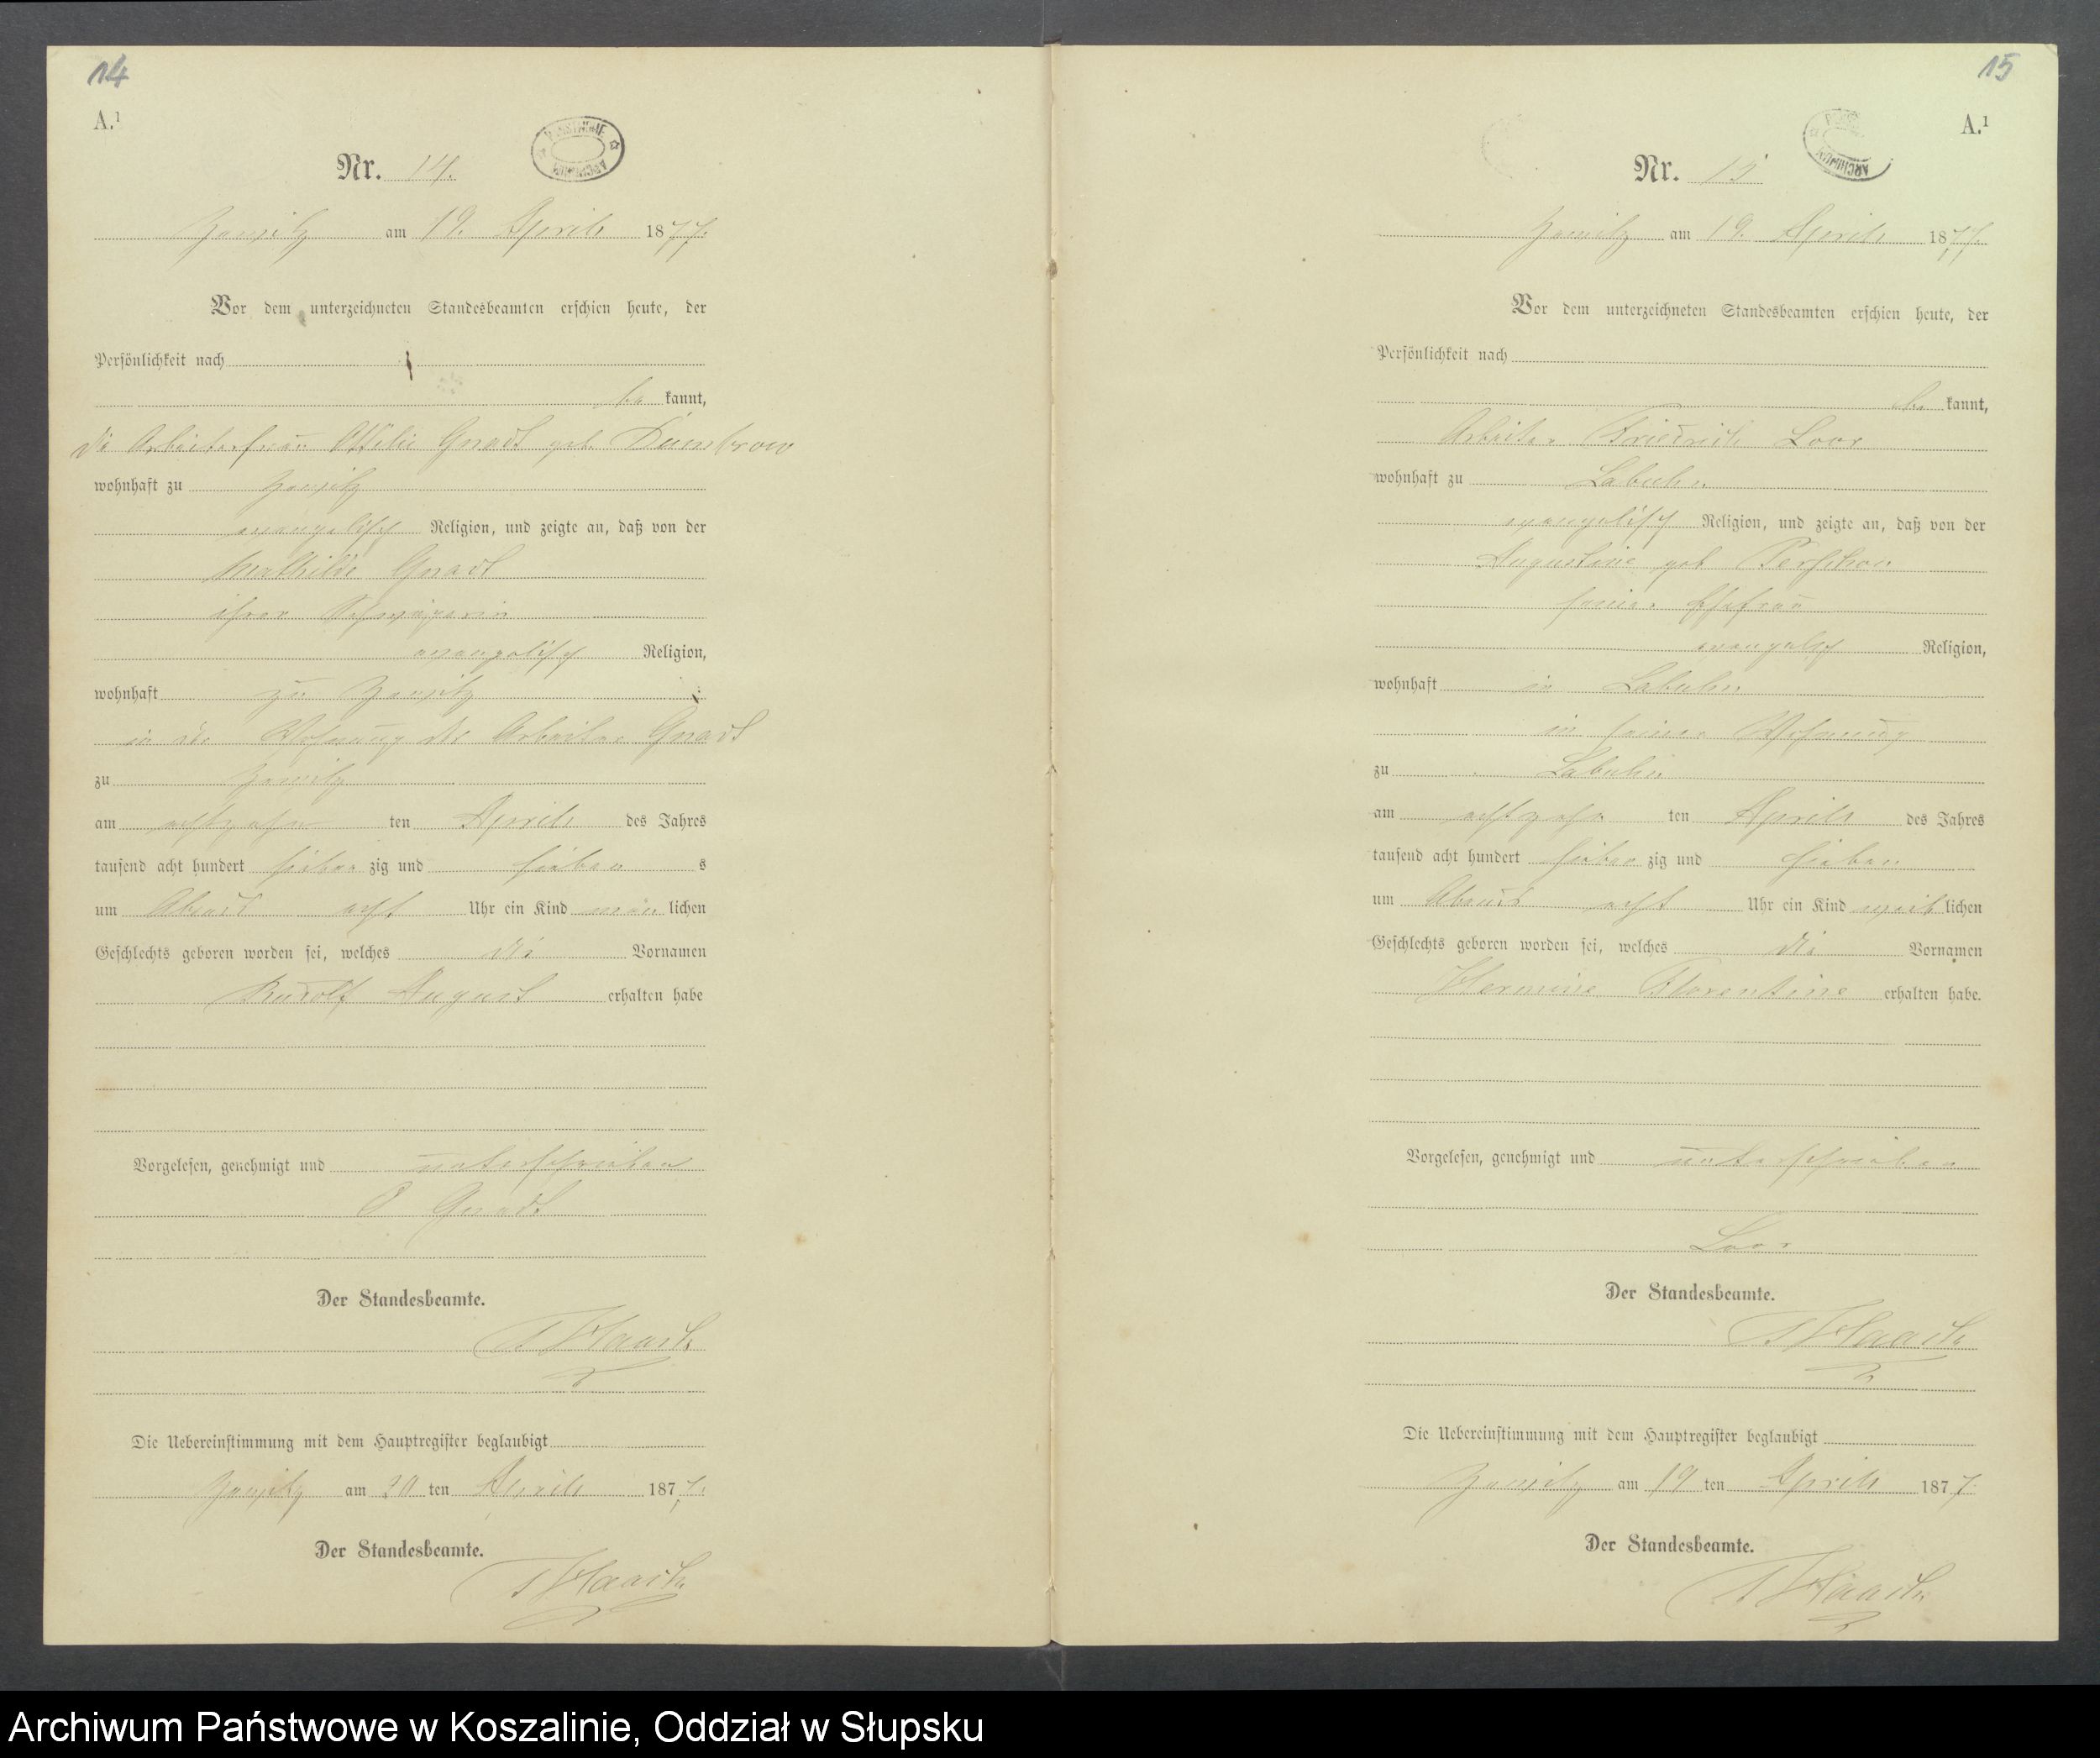 14
A.¹
Nr. 14.
Zewitz am 19. April 1877.
Vor dem unterzeichneten Standesbeamten erschien heute, der
Persönlichkeit nach
be kannt,
die Arbeiterfrau Ottilie Gnadt geb. Dumbrow
wohnhaft zu Zewitz
evangelisch Religion, und zeigte an, daß von der
Mathilde Gnadt
ihrer Schwägerin
evangelisch Religion,
wohnhaft zu Zewitz
in der Wohnung des Arbeiter Gnadt
zu Zewitz
am achtzehn ten April des Jahres
tausend acht hundert sieben zig und sieben s
um Abends acht Uhr ein Kind män lichen
Geschlechts geboren worden sei, welches die Vornamen
Rudolf August erhalten habe
Vorgelesen, genehmigt und unterschrieben
O Gnadt
Der Standesbeamte.
Haack
Die Uebereinstimmung mit dem Hauptregister beglaubigt
Zewitz am 20 ten April 1877.
Der Standesbeamte.
Haack
15
A.¹
Nr. 15
ARCHIWUM
Zewitz am 19. April 1877.
Vor dem unterzeichneten Standesbeamten erschien heute, der
Persönlichkeit nach
be kannt,
Arbeiter Friedrich Loor
wohnhaft zu Labuhn
evangelisch Religion, und zeigte an, daß von der
Augustine geb
seiner Ehefrau
evangelisch Religion,
wohnhaft in Labuhn
in seiner Wohnung
zu Labuhn
am achtzehn ten April des Jahres
tausend acht hundert sieben zig und sieben
um Abends acht Uhr ein Kind weib lichen
Geschlechts geboren worden sei, welches die Vornamen
Hermine Florentine erhalten habe.
Vorgelesen, genehmigt und unterschrieben
Loor
Der Standesbeamte.
Haack
Die Uebereinstimmung mit dem Hauptregister beglaubigt
Zewitz am 19 ten April 1877.
Der Standesbeamte.
Haack
Archiwum Państwowe w Koszalinie, Oddział w Słupsku